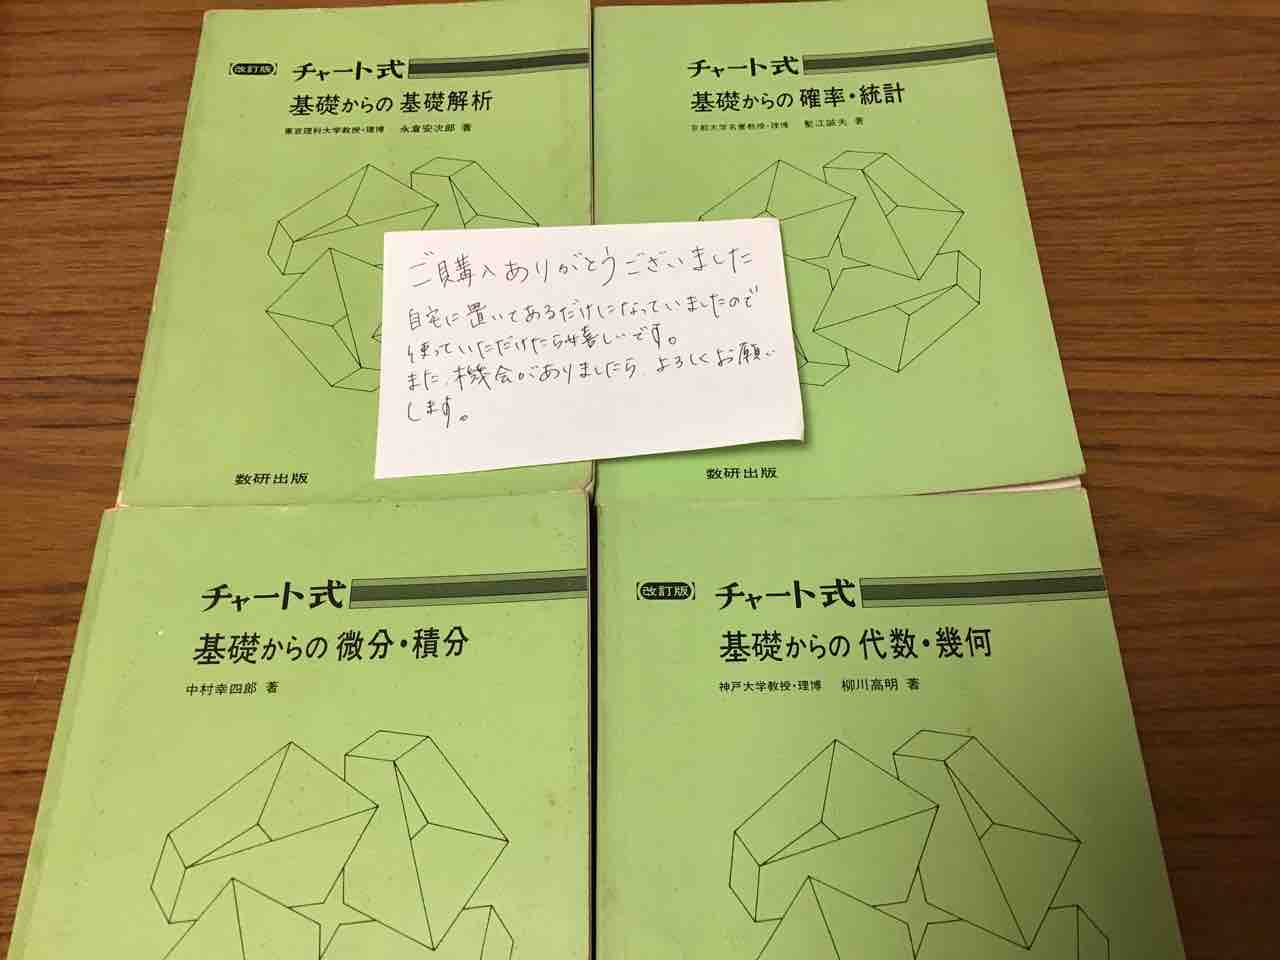 【改訂版】 チャート式
基礎からの 基礎解析
東京理科大学教授・理博 永倉安次郎 著
数研出版
チャート式
基礎からの 確率・統計
京都大学名誉教授・理博 魚江誠夫 著
数研出版
ご購入ありがとうございました
自宅に置いてあるだけになっていましたので
使っていただけたら嬉しいです。
また、機会がありましたら、よろしくお願い
します。
チャート式
基礎からの 微分・積分
中村幸四郎 著
【改訂版】 チャート式
基礎からの 代数・幾何
神戸大学教授・理博 柳川高明 著